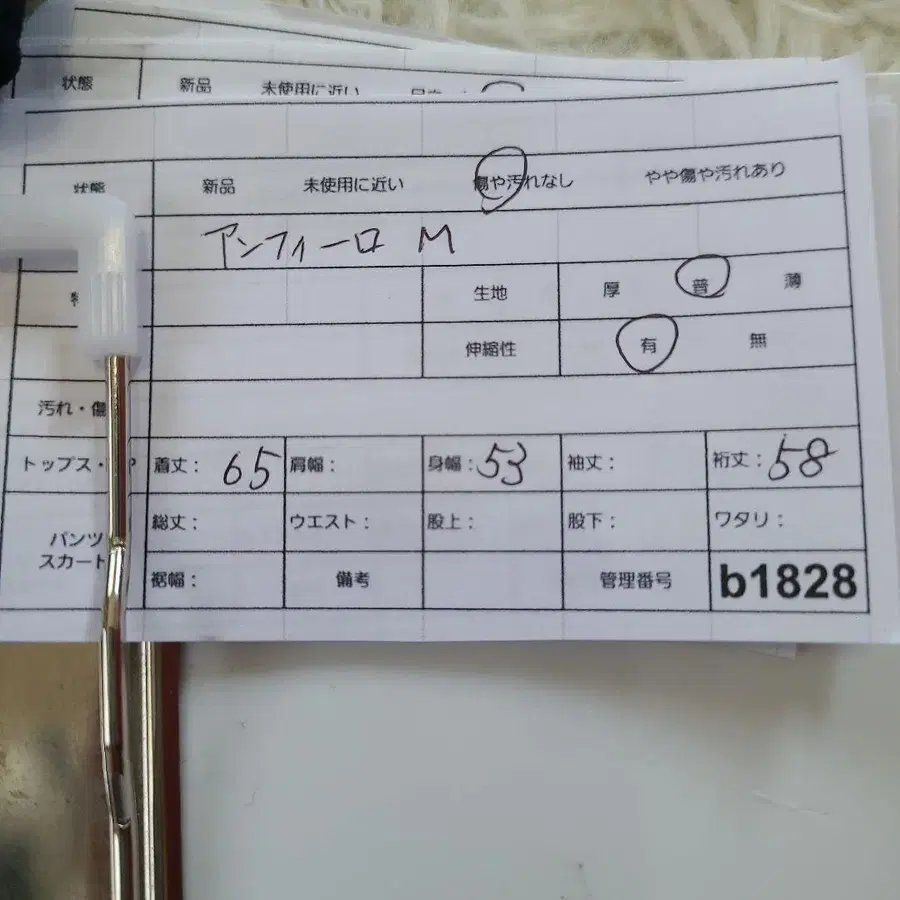 状態 新品 未使用に近い
状態 新品 未使用に近い 傷や汚れなし やや傷や汚れあり
アンフィーロ M
生地 厚 普 薄
伸縮性 有 無
汚れ・傷
トップス・ 着丈: 65 肩幅: 身幅: 53 袖丈: 裄丈: 58
パンツ 総丈: ウエスト: 股上: 股下: ワタリ:
スカート
裾幅: 備考 管理番号 b1828